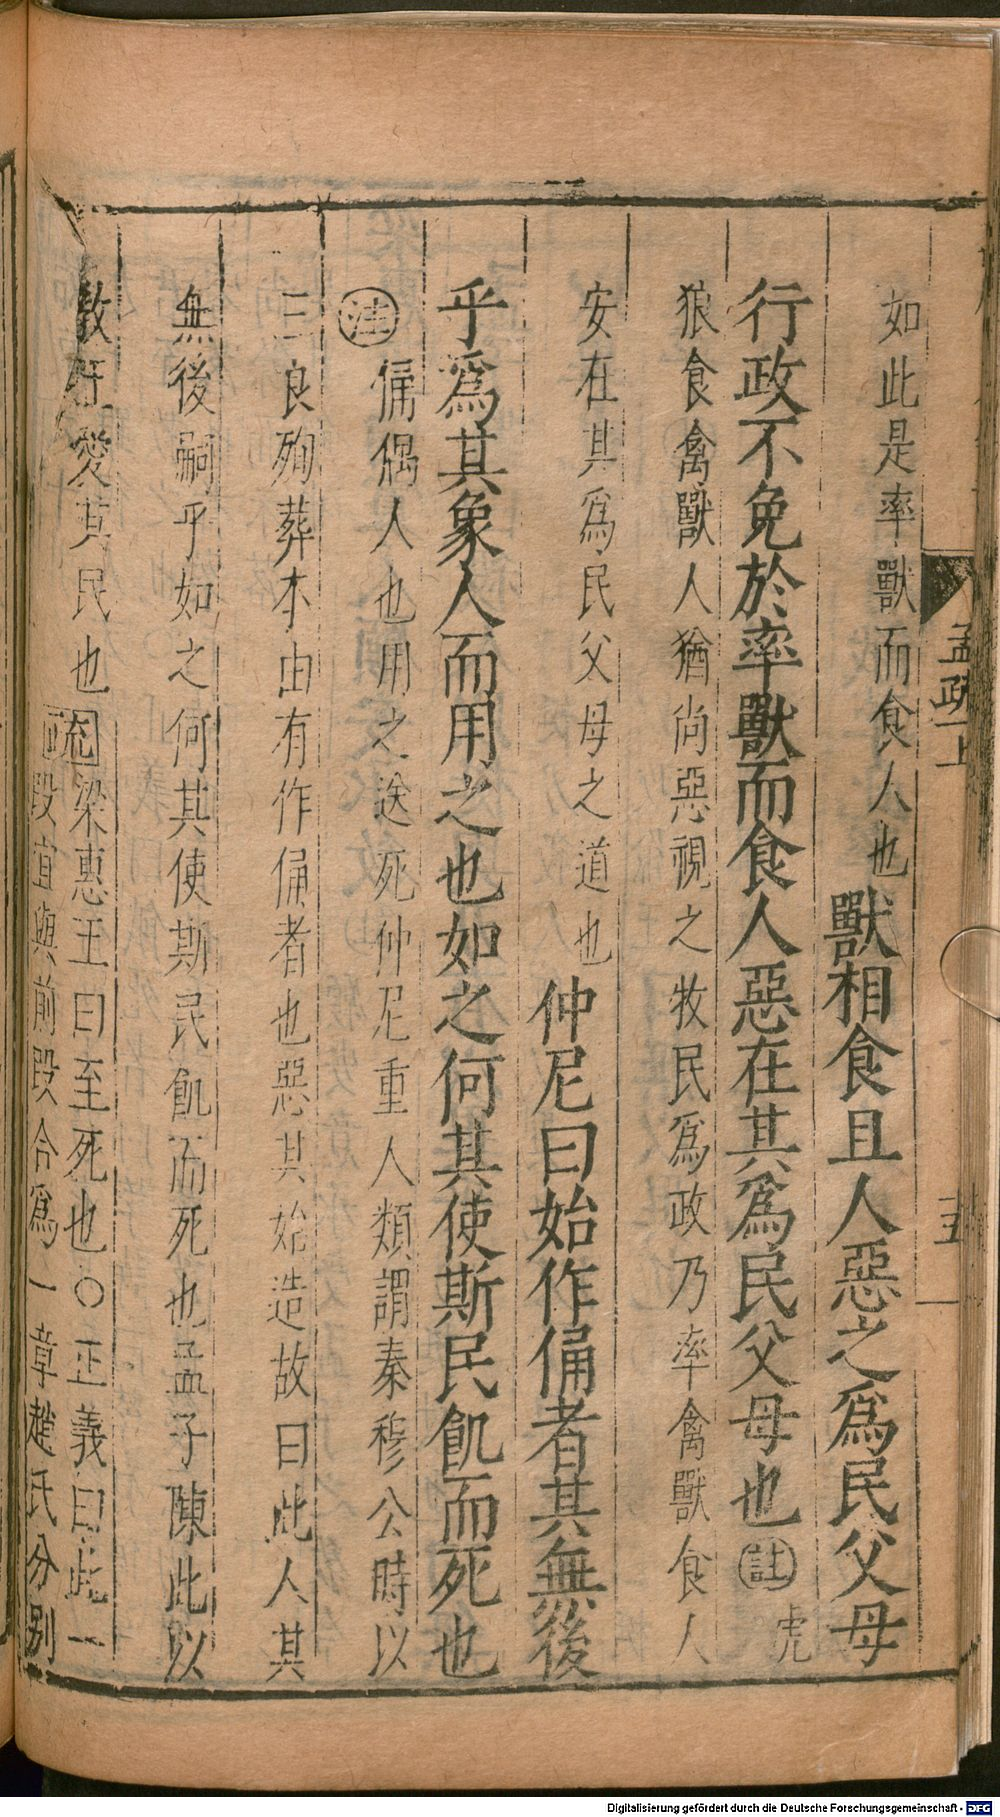 如此是率獸而食人也獸相食且人惡之爲民父母
行政不免於率獸而食人惡在其爲民父母也註虎
狼食禽獸人猶尚惡視之牧民爲政乃率禽獸食人
安在其爲民父母之道也仲尼曰始作俑者其無後
乎爲其象人而用之也如之何其使斯民飢而死也
注俑偶人也用之送死仲尼重人類謂秦穆公時以
三良殉葬本由有作俑者也惡其始造故曰此人其
無後嗣乎如之何其使斯民飢而死也孟子陳此以
教王愛其民也疏梁惠王曰至死也○正義曰此一
段宜與前段合爲一章趙氏分別
孟疏一上
五
Digitalisierung gefördert durch die Deutsche Forschungsgemeinschaft - DFG